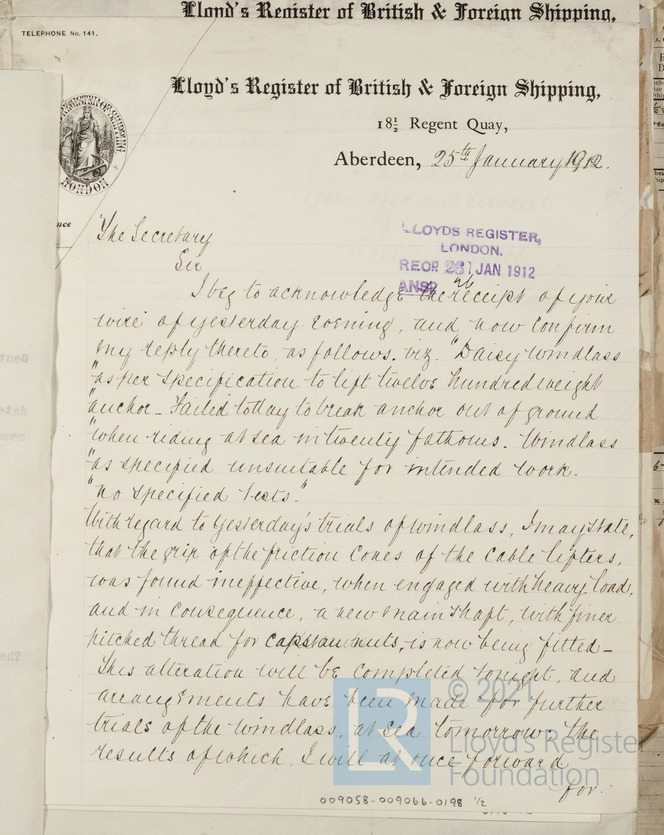 Lloyd's Register of British & Foreign Shipping,
TELEPHONE No. 141.
Lloyd's Register of British & Foreign Shipping,
18½ Regent Quay,
Aberdeen, 25th January 1912.
LONDON
The Secretary
LLOYDS REGISTER,
LONDON.
Sir
RECD 26 JAN 1912
ANSD
I beg to acknowledge the receipt of your
wire of yesterday evening, and now confirm
my reply thereto, as follows. viz. "Daisy windlass
"as per specification to lift twelve hundredweight
"anchor - Failed today to break anchor out of ground
"when riding at sea in twenty fathoms. Windlass
"as specified unsuitable for intended work.
"no specified tests."
With regard to yesterday's trials of windlass, I may state,
that the grip of the friction cones of the cable lifters,
was found ineffective, when engaged with heavy load,
and in consequence, a new main shaft, with finer
pitched thread for capstan nuts, is now being fitted -
This alteration will be completed tonight, and
arrangements have been made for further
trials of the windlass, at sea tomorrow, the
results of which, I will at once forward
for
© 2021
Lloyd's Register
Foundation
009058-009066-0198 1/2